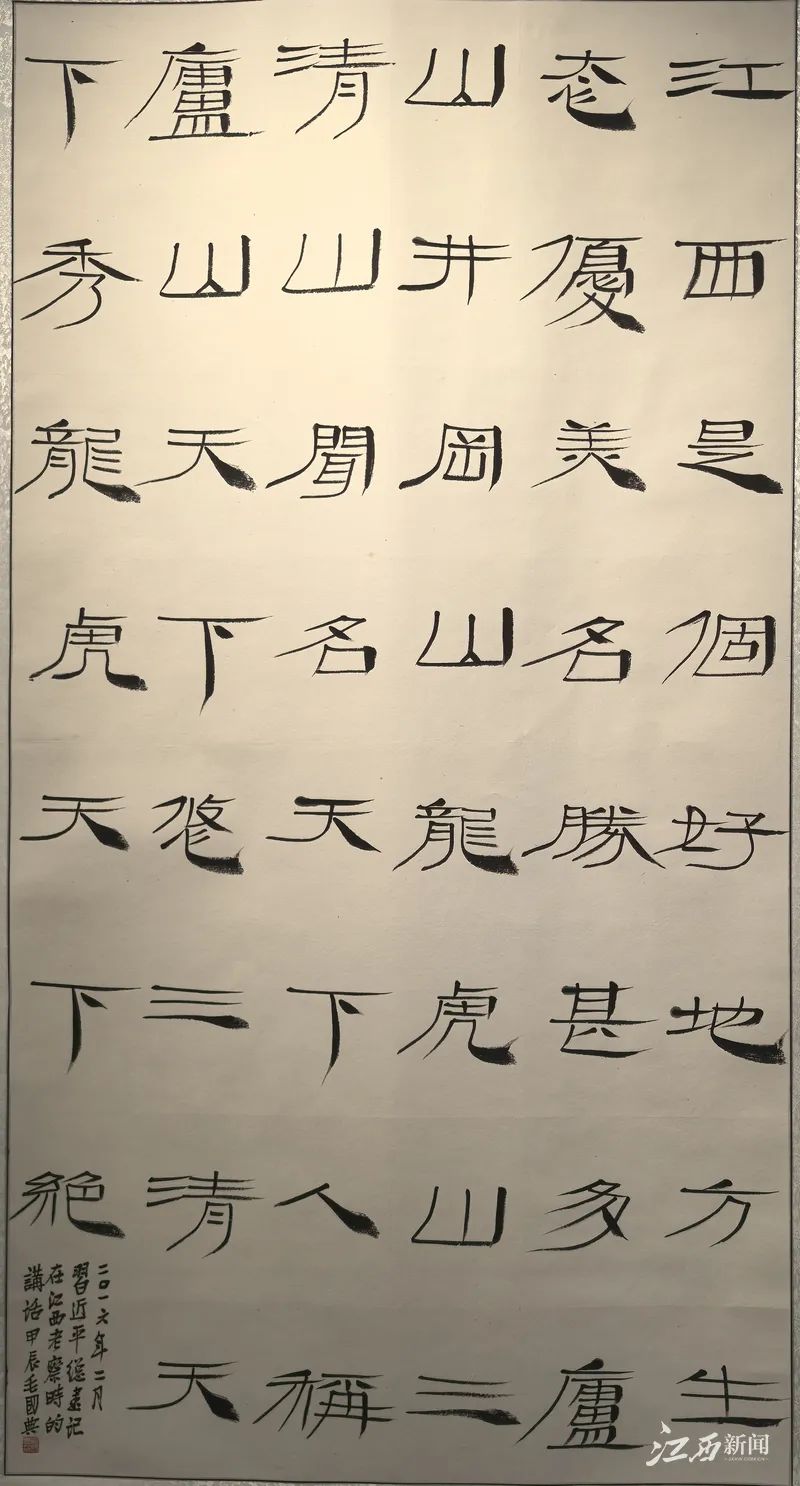 江西是個好地方生
态優美名勝甚多廬
山井岡山龍虎山三
清山聞名天下人稱
廬山天下悠三清天
下秀龍虎天下絶
二〇一六年二月
習近平總書记
在江西考察時的
講话甲辰毛國典
江西新闻